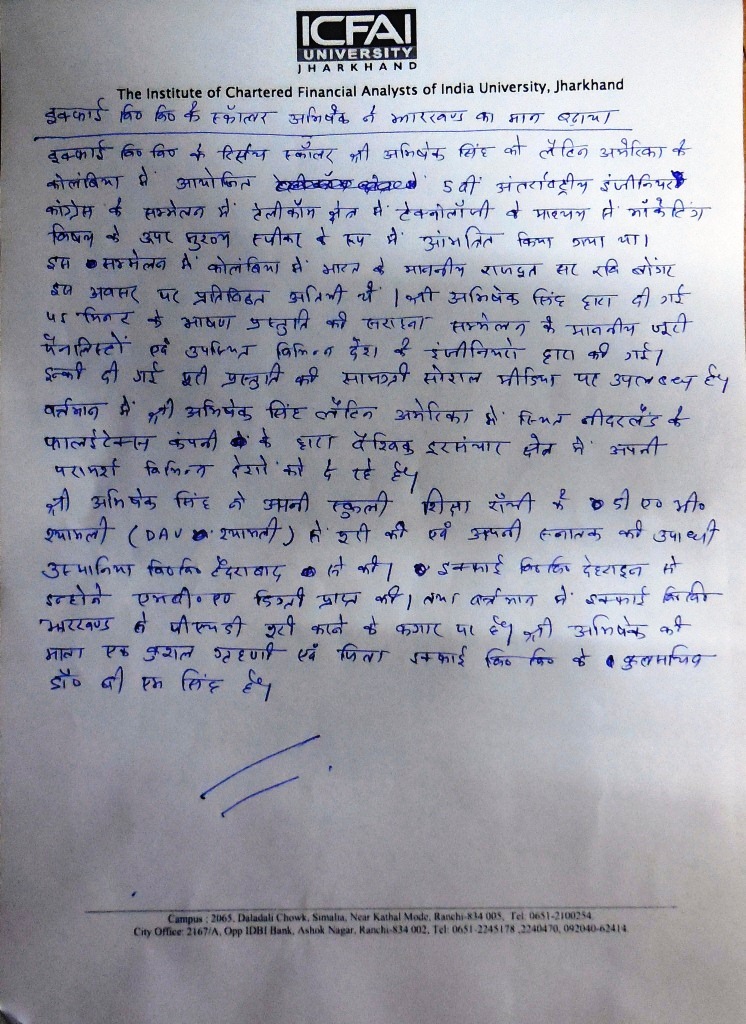 ICFAI
UNIVERSITY
JHARKHAND
The Institute of Chartered Financial Analysts of India University, Jharkhand
इक्फाई वि० वि० के स्कॉलर अभिषेक ने झारखण्ड का मान बढ़ाया
इक्फाई वि० वि० के रिर्सच स्कॉलर श्री अभिषेक सिंह को लैटिन अमेरिका के
कोलंबिया में आयोजित 5 वीं अंतर्राष्ट्रीय इंजीनियर
कांग्रेस के सम्मेलन में टेलीकॉम क्षेत्र में टेक्नोलॉजी के माध्यम से मॉर्केटिंग
विषय के उपर मुख्य स्पीकर के रूप में आंमत्रित किया गया था।
इस सम्मेलन में कोलंबिया में भारत के माननीय राजदूत सर रवि बांगर
इस अवसर पर प्रतिष्ठित अतिथी थे । श्री अभिषेक सिंह द्वारा दी गई
के भाषण प्रस्तुति की सराहना सम्मेलन के माननीय जूरी
पैनालिस्टों एवं उपस्थित विभिन्न देश के इंजीनियरो द्वारा की गई।
इनकी दी गई पूरी प्रस्तुति की सामग्री सोशल मीडिया पर उपलब्ध है।
वर्तमान में श्री अभिषेक सिंह लैटिन अमेरिका में स्थित नीदरलैंड के
कंपनी के द्वारा वैश्विक दूरसंचार क्षेत्र में अपनी
परामर्श विभिन्न देशों को दे रहे है।
श्री अभिषेक सिंह ने अपनी स्कुली शिक्षा राँची के डी ए० भी०
श्यामली (DAV श्यामली) से पूरी की एवं अपनी स्नातक की उपाधी
उस्मानिया वि० वि० हैदराबाद से की। इक्फाई वि० वि० देहरादून से
इन्होंने एम० बी० ए० डिग्री प्राप्त की। तथा वर्त्तमान में इक्फाई वि० वि०
झारखण्ड से पीएचडी पूरी करने के कगार पर है। श्री अभिषेक की
माता एक कुशल गृहणी एवं पिता इक्फाई वि० वि० के कुलसचिव
डॉ० बी एम सिंह है।
Campus : 2065, Daladali Chowk, Simalia, Near Kathal Mode, Ranchi-834 005, Tel: 0651-2100254
City Office: 2167/A, Opp IDBI Bank, Ashok Nagar, Ranchi-834 002, Tel: 0651-2245178 ,2240470, 092040-62414